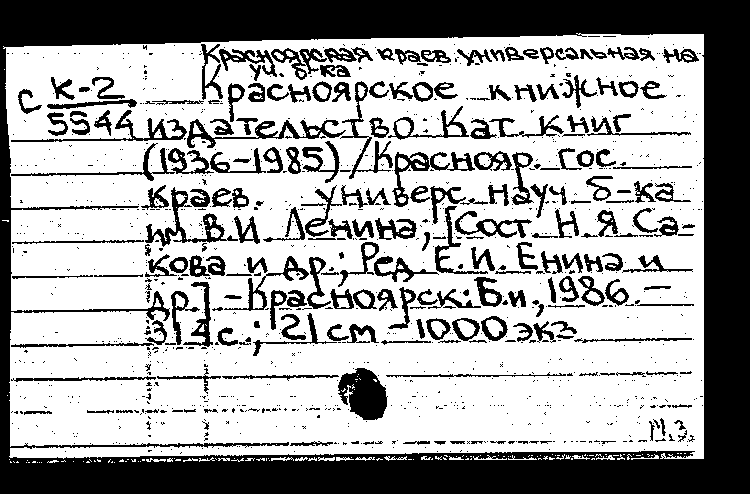 Красноярская краев. универсальная на
уч. б-ка
с К-2 Красноярское книжное
5544 издательство: Кат. книг
(1936-1985) / Краснояр. гос.
краев. универс. науч. б-ка
им. В.И. Ленина; [Сост. Н.Я Са-
кова и др.; Ред. Е.И. Енина и
др.] -Красноярск: Б.и., 1986. —
314 с.; 21 cm - 1000 экз
М.З.